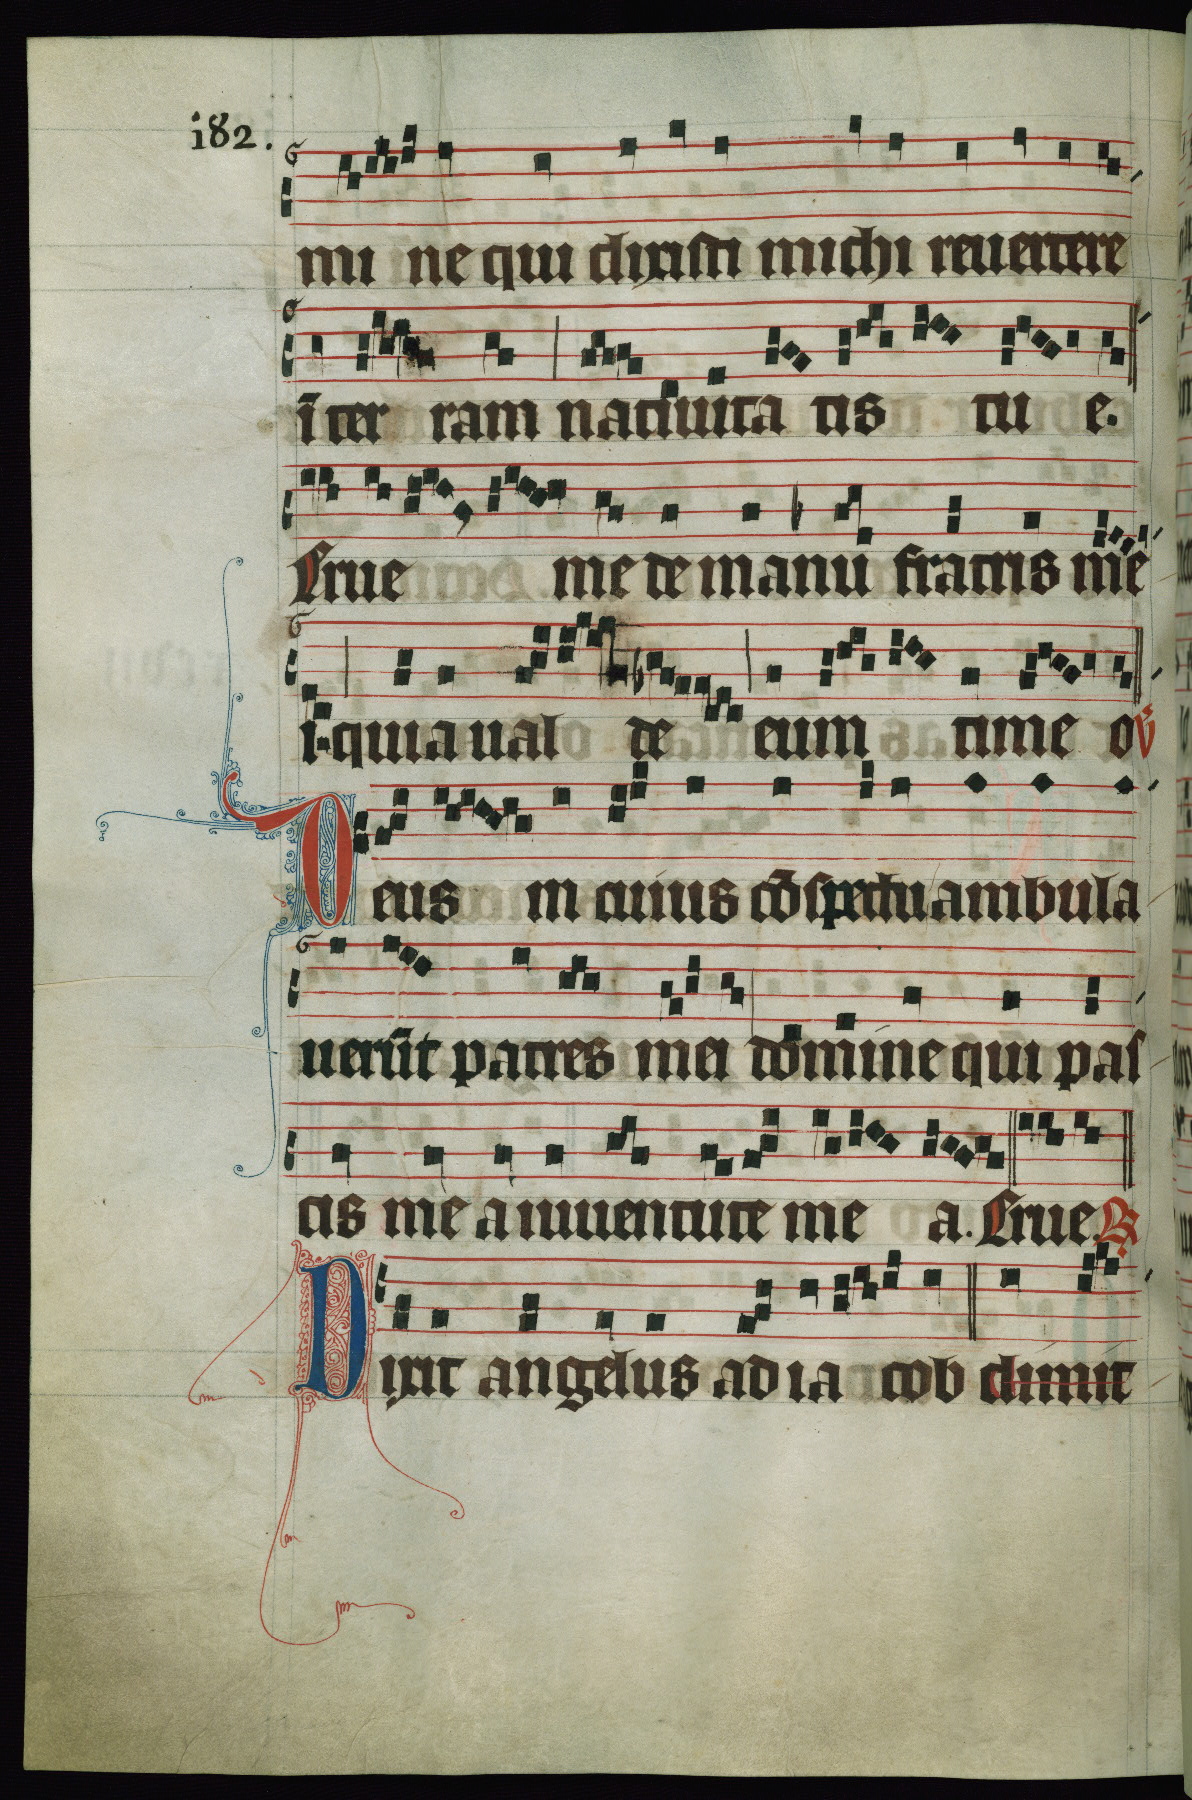 i82.
mi ne qui dixisti michi reuertere
ī ter ram natiuita tis tu e.
Erue me de manu fratris me
i. quia ual de eum time o ℣
Deus in cuius cōspectu ambula
uerūt patres mei domine qui pas
cis me a iuuentute me a. Erue. ℟
Dixit angelus ad ia cob dimit